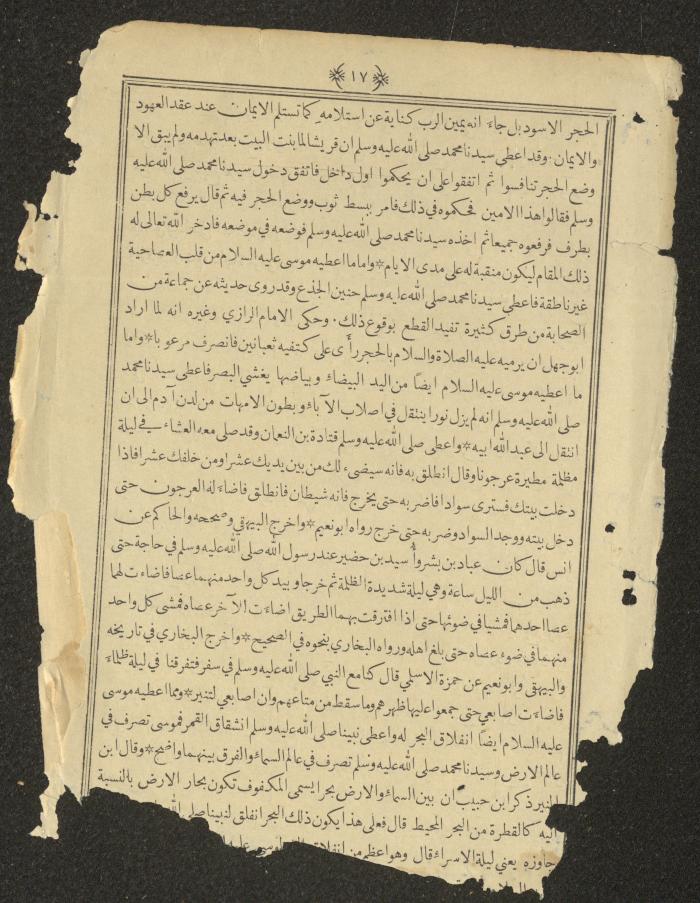 ١٧
الحجر الاسود بل جاء انه يمين الرب كناية عن استلامه كما تستلم الايمان عند عقد العهود
والايمان. وقد اعطي سيدنا محمد صلى الله عليه وسلم ان قريشا لما بنت البيت بعد تهدمه ولم يبق الا
وضع الحجر تنافسوا ثم اتفقوا على ان يحكموا اول داخل فاتفق دخول سيدنا محمد صلى الله عليه
وسلم فقالوا هذا الامين فحكموه في ذلك فامر ببسط ثوب ووضع الحجر فيه ثم قال يرفع كل بطن
بطرف فرفعوه جميعا ثم اخذه سيدنا محمد صلى الله عليه وسلم فوضعه في موضعه فادخر الله تعالى له
ذلك المقام ليكون منقبة له على مدى الايام * واما ما اعطيه موسى عليه السلام من قلب العصا حية
غير ناطقة فاعطي سيدنا محمد صلى الله عليه وسلم حنين الجذع وقد روى حديثه عن جماعة من
الصحابة من طرق كثيرة تفيد القطع بوقوع ذلك. وحكى الامام الرازي وغيره انه لما اراد
ابو جهل ان يرميه عليه الصلاة والسلام بالحجر رأى على كتفيه ثعبانين فانصرف مرعوبا * واما
ما اعطيه موسى عليه السلام ايضا من اليد البيضاء وبياضها يغشي البصر فاعطي سيدنا محمد
صلى الله عليه وسلم انه لم يزل نورا ينتقل في اصلاب الآباء وبطون الامهات من لدن آدم الى ان
انتقل الى عبد الله ابيه * واعطي صلى الله عليه وسلم قتادة بن النعمان وقد صلى معه العشاء في ليلة
مظلمة مطيرة عرجونا وقال انطلق به فانه سيضيء لك من بين يديك عشرا ومن خلفك عشرا فاذا
دخلت بيتك فسترى سوادا فاضربه حتى يخرج فانه شيطان فانطلق فاضاء له العرجون حتى
دخل بيته ووجد السواد وضربه حتى خرج رواه ابو نعيم * واخرج البيهقي وصححه والحاكم عن
انس قال كان عباد بن بشر وأسيد بن حضير عند رسول الله صلى الله عليه وسلم في حاجة حتى
ذهب من الليل ساعة وهي ليلة شديدة الظلمة ثم خرجا وبيد كل واحد منهما عصا فاضاءت لهما
عصا احدهما فمشيا في ضوئها حتى اذا افترقت بهما الطريق اضاءت الآخر عصاه فمشى كل واحد
منهما في ضوء عصاه حتى بلغ اهله ورواه البخاري بنحوه في الصحيح * واخرج البخاري في تاريخه
والبيهقي وابو نعيم عن حمزة الاسلمي قال كنا مع النبي صلى الله عليه وسلم في سفر فتفرقنا في ليلة ظلماء
فاضاءت اصابعي حتى جمعوا عليها ظهرهم وما سقط من متاعهم وان اصابعي لتنير * ومما اعطيه موسى
عليه السلام ايضا انفلاق البحر له واعطي نبينا صلى الله عليه وسلم انشقاق القمر فموسى تصرف في
عالم الارض وسيدنا محمد صلى الله عليه وسلم تصرف في عالم السماء والفرق بينهما واضح * وقال ابن
المنير ذكر ابن حبيب ان بين السماء والارض بحرا يسمى المكفوف تكون بحار الارض بالنسبة
اليه كالقطرة من البحر المحيط قال فعلى هذا يكون ذلك البحر انفلق لنبينا صلى الله
جاوزه يعني ليلة الاسراء قال وهو اعظم من انفلاق